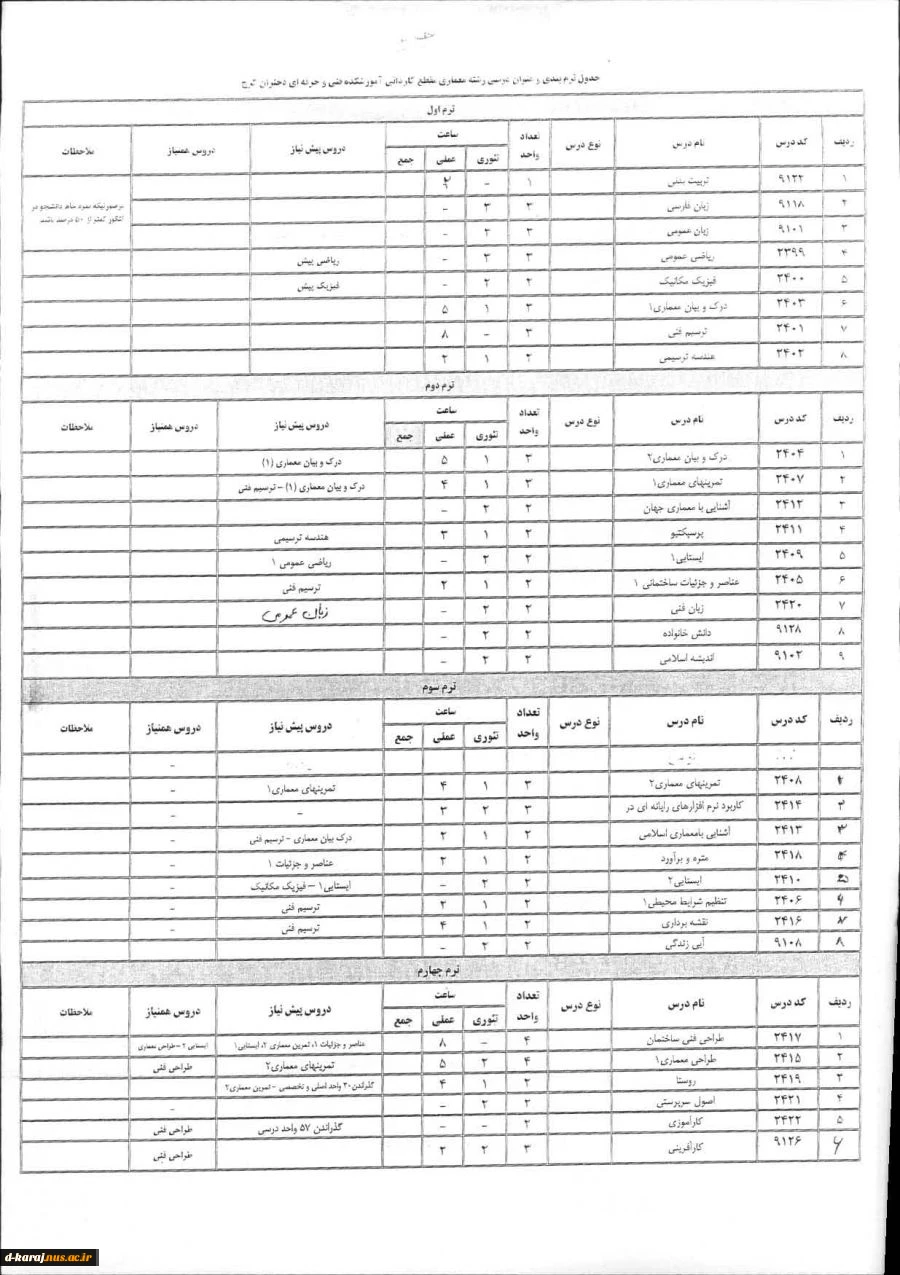 جدول ترم بندی و عنوان دروس رشته معماری مقطع کاردانی آموزشکده فنی و حرفه ای دختران کرج
ترم اول
ردیف کد درس نام درس نوع درس تعداد واحد ساعت تئوری عملی جمع دروس پیش نیاز دروس همنیاز ملاحظات
۱ ۹۱۲۲ تربیت بدنی ۱ - ۲
۲ ۹۱۱۸ زبان فارسی ۳ ۳ -
۳ ۹۱۰۱ زبان عمومی ۳ ۳ -
۴ ۲۳۹۹ ریاضی عمومی ۳ ۳ - ریاضی پیش
۵ ۲۴۰۰ فیزیک مکانیک ۲ ۲ - فیزیک پیش
۶ ۲۴۰۳ درک و بیان معماری۱ ۳ ۱ ۵
۷ ۲۴۰۱ ترسیم فنی ۳ - ۸
۸ ۲۴۰۲ هندسه ترسیمی ۲ ۱ ۲
ترم دوم
ردیف کد درس نام درس نوع درس تعداد واحد ساعت تئوری عملی جمع دروس پیش نیاز دروس همنیاز ملاحظات
۱ ۲۴۰۴ درک و بیان معماری۲ ۳ ۱ ۵ درک و بیان معماری (۱)
۲ ۲۴۰۷ تمرینهای معماری۱ ۳ ۱ ۴ درک و بیان معماری (۱) - ترسیم فنی
۳ ۲۴۱۲ آشنایی با معماری جهان ۲ ۲ -
۴ ۲۴۱۱ پرسپکتیو ۲ ۱ ۳ هندسه ترسیمی
۵ ۲۴۰۹ ایستایی۱ ۲ ۲ - ریاضی عمومی ۱
۶ ۲۴۰۵ عناصر و جزئیات ساختمانی ۱ ۲ ۱ ۲ ترسیم فنی
۷ ۲۴۲۰ زبان فنی ۲ ۲ - زبان عمومی
۸ ۹۱۲۸ دانش خانواده ۲ ۲ -
۹ ۹۱۰۲ اندیشه اسلامی ۲ ۲ -
ترم سوم
ردیف کد درس نام درس نوع درس تعداد واحد ساعت تئوری عملی جمع دروس پیش نیاز دروس همنیاز ملاحظات
-
۱ ۲۴۰۸ تمرینهای معماری۲ ۳ ۱ ۴ تمرینهای معماری۱ -
۲ ۲۴۱۴ کاربرد نرم افزارهای رایانه ای در ۳ ۲ ۳ - -
۳ ۲۴۱۳ آشنایی بامعماری اسلامی ۲ ۱ ۲ درک بیان معماری - ترسیم فنی -
۴ ۲۴۱۸ متره و برآورد ۲ ۱ ۲ عناصر و جزئیات ۱ -
۵ ۲۴۱۰ ایستایی۲ ۲ ۲ - ایستایی۱ - فیزیک مکانیک -
۶ ۲۴۰۶ تنظیم شرایط محیطی۱ ۲ ۱ ۲ ترسیم فنی -
۷ ۲۴۱۶ نقشه برداری ۲ ۱ ۴ ترسیم فنی -
۸ ۹۱۰۸ آیی زندگی ۲ ۲ - -
ترم چهارم
ردیف کد درس نام درس نوع درس تعداد واحد ساعت تئوری عملی جمع دروس پیش نیاز دروس همنیاز ملاحظات
۱ ۲۴۱۷ طراحی فنی ساختمان ۴ - ۸ عناصر و جزئیات ۱، تمرین معماری ۲، ایستایی۱ ایستایی ۲ - طراحی معماری
۲ ۲۴۱۵ طراحی معماری۱ ۴ ۲ ۵ تمرینهای معماری۲ طراحی فنی
۳ ۲۴۱۹ روستا ۲ ۱ ۴ گذراندن ۲۰ واحد اصلی و تخصصی - تمرین معماری۲
۴ ۲۴۲۱ اصول سرپرستی ۲ ۲ - -
۵ ۲۴۲۲ کارآموزی ۲ - - گذراندن ۵۷ واحد درسی طراحی فنی
۶ ۹۱۲۶ کارآفرینی ۳ ۲ ۲ طراحی فنی
d-karaj.nus.ac.ir